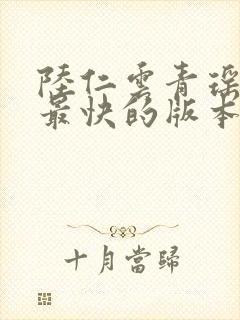 陸仁雲青瑶
最快的版本
十月當歸